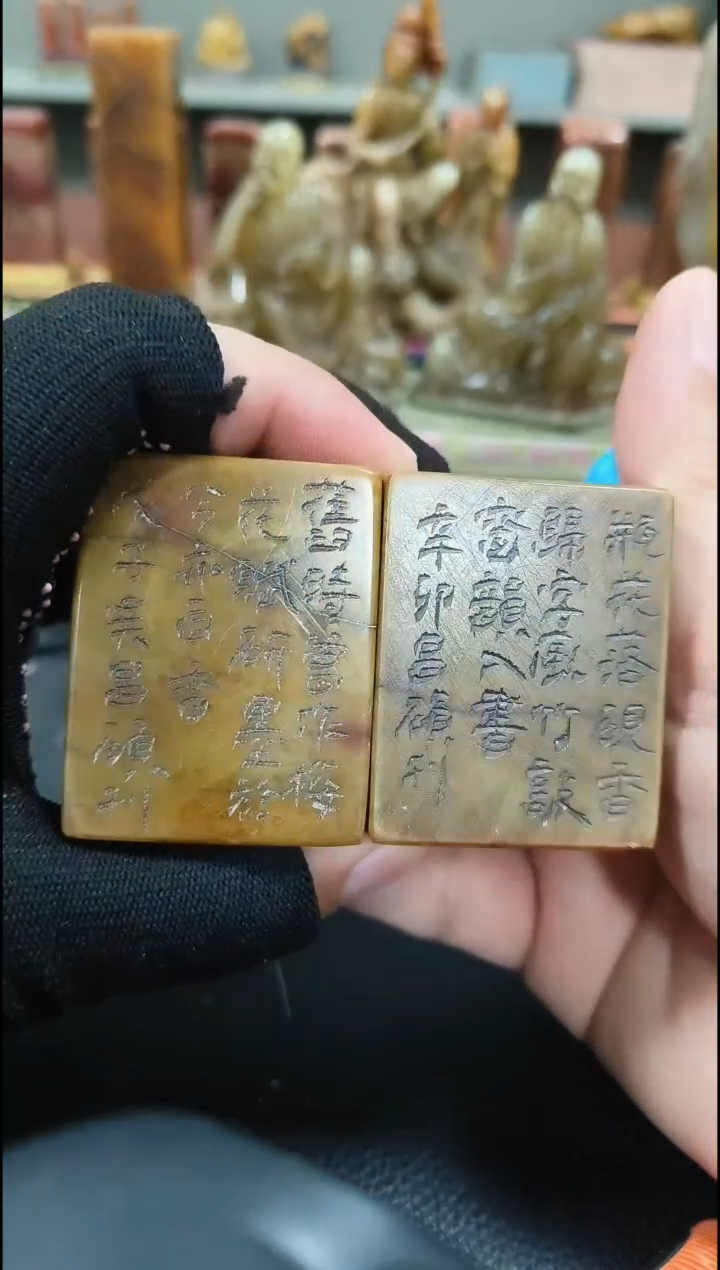 瓶花落硯香
歸字風竹敲
窗韻入書
辛卯昌碩刊
舊時曾作梅
花賦研墨於
今亦自香
子吳昌碩刊